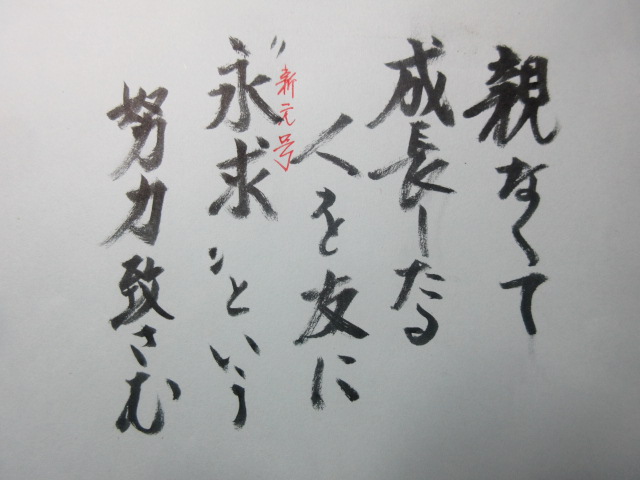 親なくて
成長したる
人を友に
新元号
〝永求〟という
努力致さむ